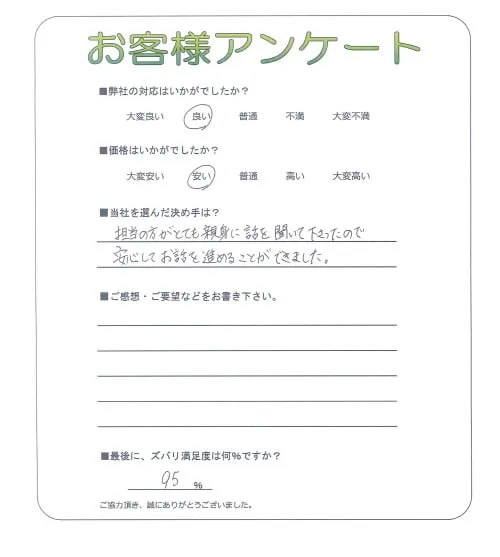 お客様アンケート
■弊社の対応はいかがでしたか？
大変良い 良い 普通 不満 大変不満
■価格はいかがでしたか？
大変安い 安い 普通 高い 大変高い
■当社を選んだ決め手は？
担当の方がとても親身に話を聞いて下さったので
安心してお話を進めることができました。
■ご感想・ご要望などをお書き下さい。
■最後に、ズバリ満足度は何％ですか？
95 ％
ご協力頂き、誠にありがとうございました。